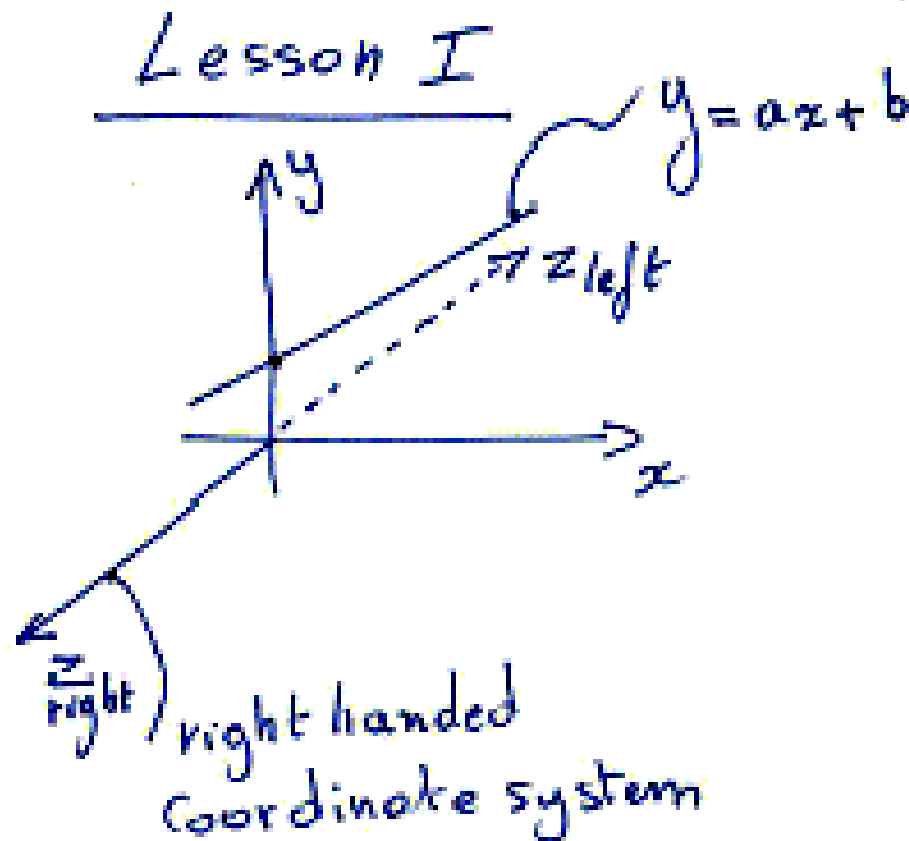 Lesson I
y = ax + b
y
z left
x
z right
right handed
coordinate system